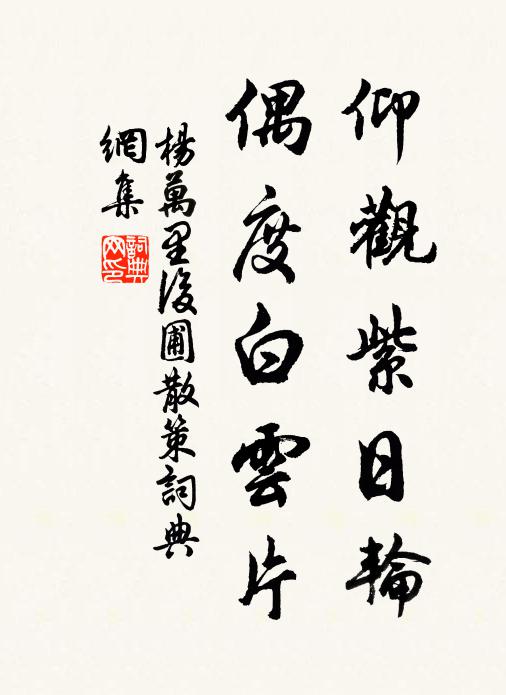 仰觀紫日輪
偶度白雲片
楊萬里後圃散策詞典
網集
詞典
网印